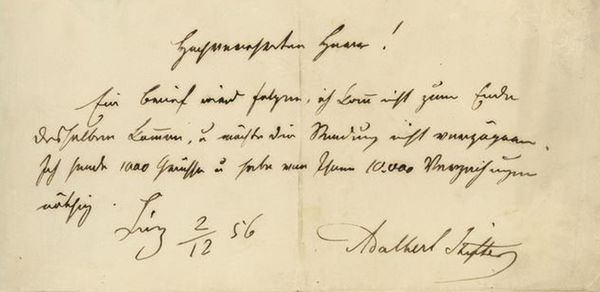 Hochverehrter Herr!
Ein Brief wird folgen, ich kann nicht zum Ende
desselben kommen, u möchte die Sendung nicht verzögern.
Ich sende 1000 Grüsse u habe von Ihnen 10.000 Verzeihungen
nöthig.
Linz 2/12 56
Adalbert Stifter